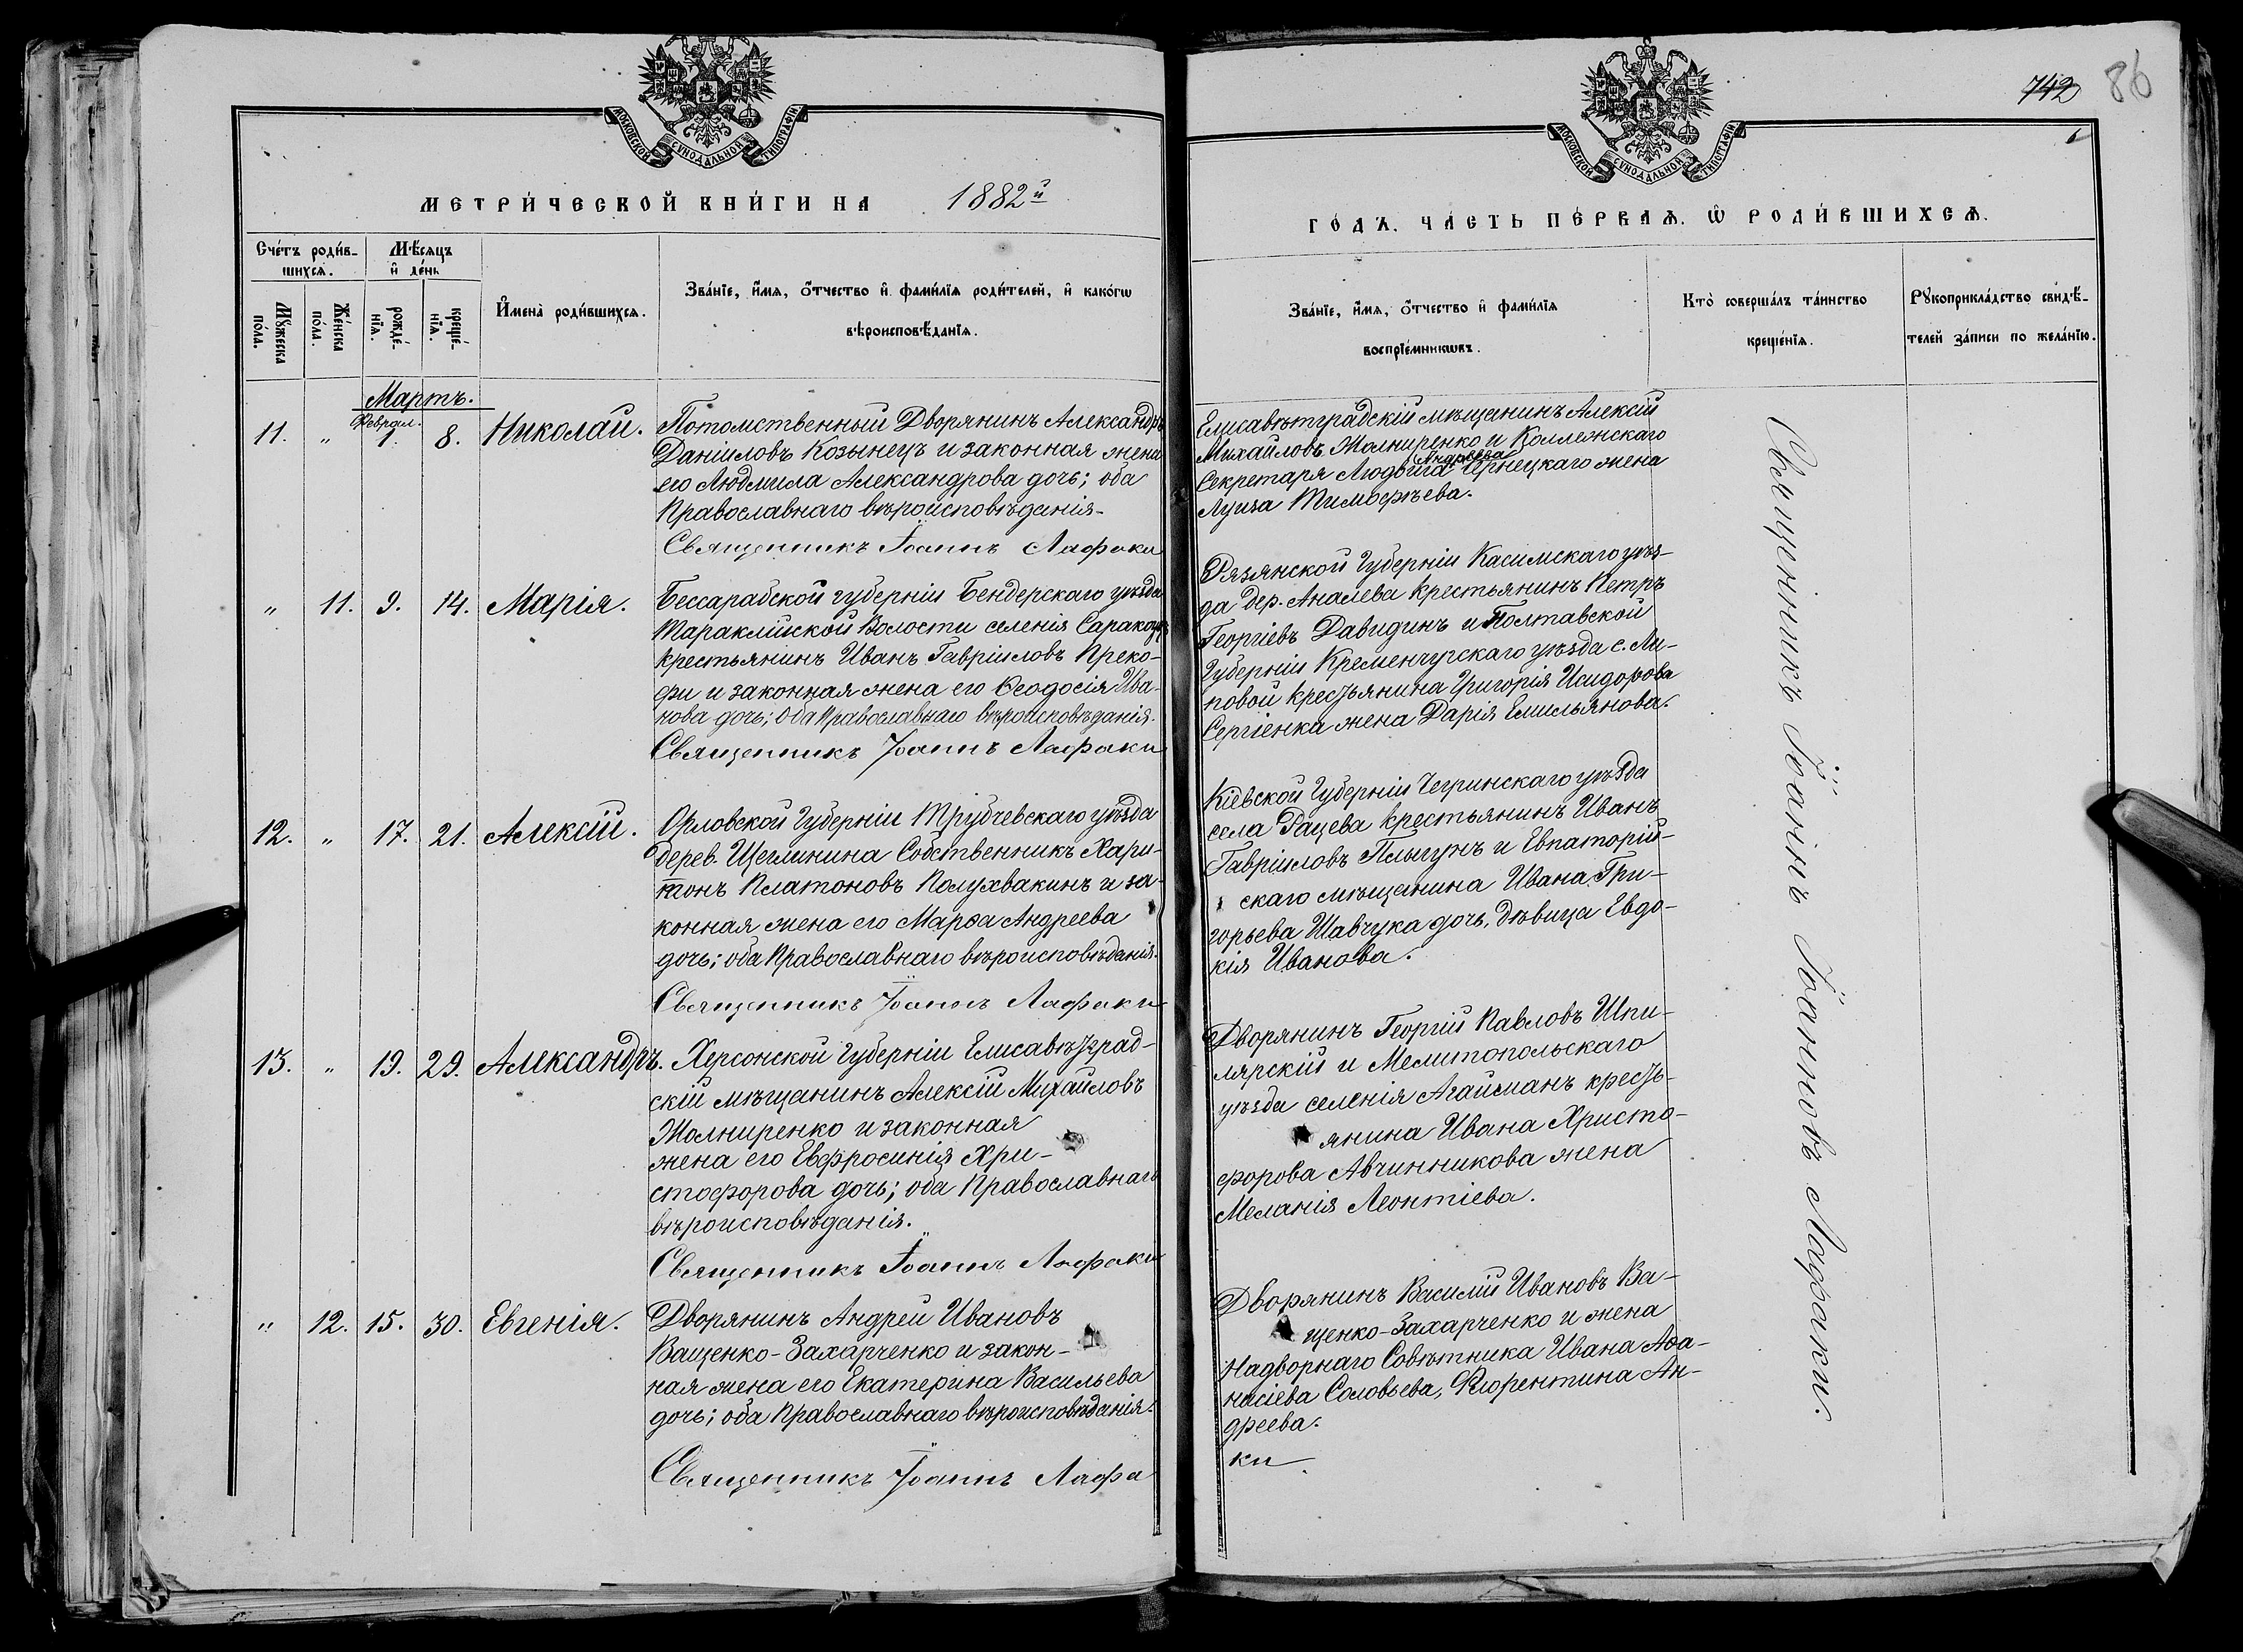 МОСКОВСКОЙ СѴНОДАЛЬНОЙ ТИПОГРАФІИ
МЕТРИ́ЧЕСКОЙ КНИ́ГИ НА 1882й
Сче́тъ роди́в-
шихсѧ.
Мѣ́сѧцъ
и҆ де́нь
Мꙋ́жеска
по́ла.
Же́нска
по́ла.
рожде́-
нїѧ.
креще́-
нїѧ.
И҆мена̀ роди́вшихсѧ.
Зва́нїе, и҆́мѧ, ѻ҆́тчество и҆ фами́лїѧ роди́телей, и҆ како́гѡ
вѣроисповѣ́данїѧ.
Мартъ.
Феврал.
11. „ 7. 8. Николай. Потомственный Дворянинъ Александръ
Даніиловъ Козынецъ и законная жена
его Людмила Александрова дочь; оба
Православнаго вѣроисповѣданія.
Священникъ Іоаннъ Лафаки
„ 11. 9. 14. Марія. Бессарабской губерніи Бендерскаго уѣзда
Тараклійской Волости селенія
крестьянинъ Иванъ Гавріиловъ Преко-
фи и законная жена его Ѳеодосія Ива-
нова дочь; Оба Православнаго вѣроисповѣданія.
Священникъ Іоаннъ Лафаки
12. „ 17. 21. Алексій. Орловской Губерніи Трубчевскаго уѣзда
дерев. Щеглинина Собственникъ Хари-
тонъ Платоновъ Полухвакинъ и за-
конная жена его Марѳа Андреева
дочь; оба Православнаго вѣроисповѣданія.
Священникъ Іоаннъ Лафаки
13. „ 19. 29. Александръ. Херсонской Губерніи Елисавѣтград-
скій мѣщанинъ Алексій Михайловъ
Жолниренко и законная
жена его Евфросинія Хри-
стофорова дочь; оба Православнаго
вѣроисповѣданія.
Священникъ Іоаннъ Лафаки
„ 12. 15. 30. Евгенія. Дворянинъ Андрей Ивановъ
Ващенко-Захарченко и закон-
ная жена его Екатерина Васильева
дочь; оба Православнаго вѣроисповѣданія.
Священникъ Іоаннъ Лафа
742 86
МОСКОВСКОЙ СѴНОДАЛЬНОЙ ТИПОГРАФІИ
ГО́ДЪ. ЧА́СТЬ ПЕ́РВАѦ. Ѡ҆ РОДИ́ВШИХСѦ.
Зва́нїе, и҆́мѧ, ѻ҆́тчество и҆ фами́лїѧ
воспрїе́мникѡвъ.
Кто̀ соверша́лъ та́инство
креще́нїѧ.
Рꙋкоприкла́дство свидѣ́-
телей за́писи по жела́нїю.
Елисавѣтградскій мѣщанинъ Алексій
Михайловъ Жолниренко и Коллежскаго
Андреева
Секретаря Людвига Чернецкаго жена
Луиза Тимофѣева.
Рязянской Губерніи Касимскаго уѣз-
да дер. Аналева крестьянинъ Петръ
Георгіевъ Давидинъ и Полтавской
Губерніи Кременчугскаго уѣзда с. Ли-
повой крестьянина Григорія Исидорова
Сергіенка жена Дарія Емильянова.
Кіевской Губерніи Чегринскаго уѣзда
села Рацева крестьянинъ Иванъ
Гавріиловъ Плыгунъ и Евпаторій-
скаго мѣщанина Ивана Гри-
горьева Шавчука дочь, дѣвица Евдо-
кія Иванова.
Дворянинъ Георгій Павловъ Шпи-
лярскій и Мелитопольскаго
уѣзда селенія Агайманъ кресть-
янина Ивана Христо-
форова Авчинникова жена
Меланія Леонтіева.
Дворянинъ Василій Ивановъ Ва-
щенко-Захарченко и жена
Надворнаго Совѣтника Ивана Аѳа-
насіева Соловьева, Флорентина Ан-
дреева.
ки
Священникъ Іоаннъ Іоанновъ Лафаки.